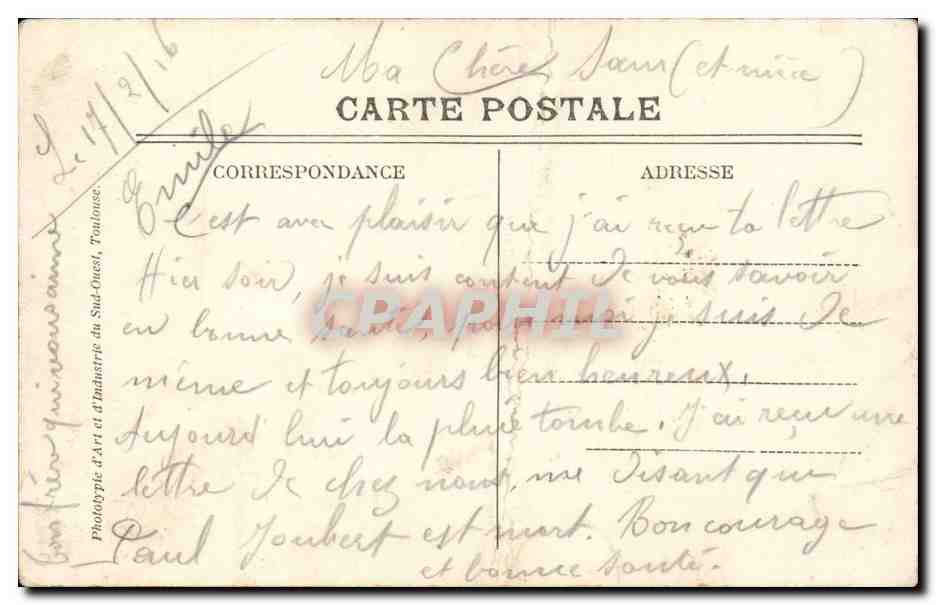 Le 17/2/16
Ma Chère Sœur (et nièce)
CARTE POSTALE
CORRESPONDANCE
ADRESSE
C'est avec plaisir que j'ai reçu ta lettre
Hier soir, je suis content de vous savoir
en bonne santé, pour moi je suis de
même et toujours bien heureux.
Aujourd'hui la pluie tombe. J'ai reçu une
lettre de chez nous, me disant que
Paul Joubert est mort. Bon courage
et bonne santé.
ton frère qui vous aime
Emile
Phototypie d'Art et d'Industrie du Sud-Ouest, Toulouse.
CPAPHIL